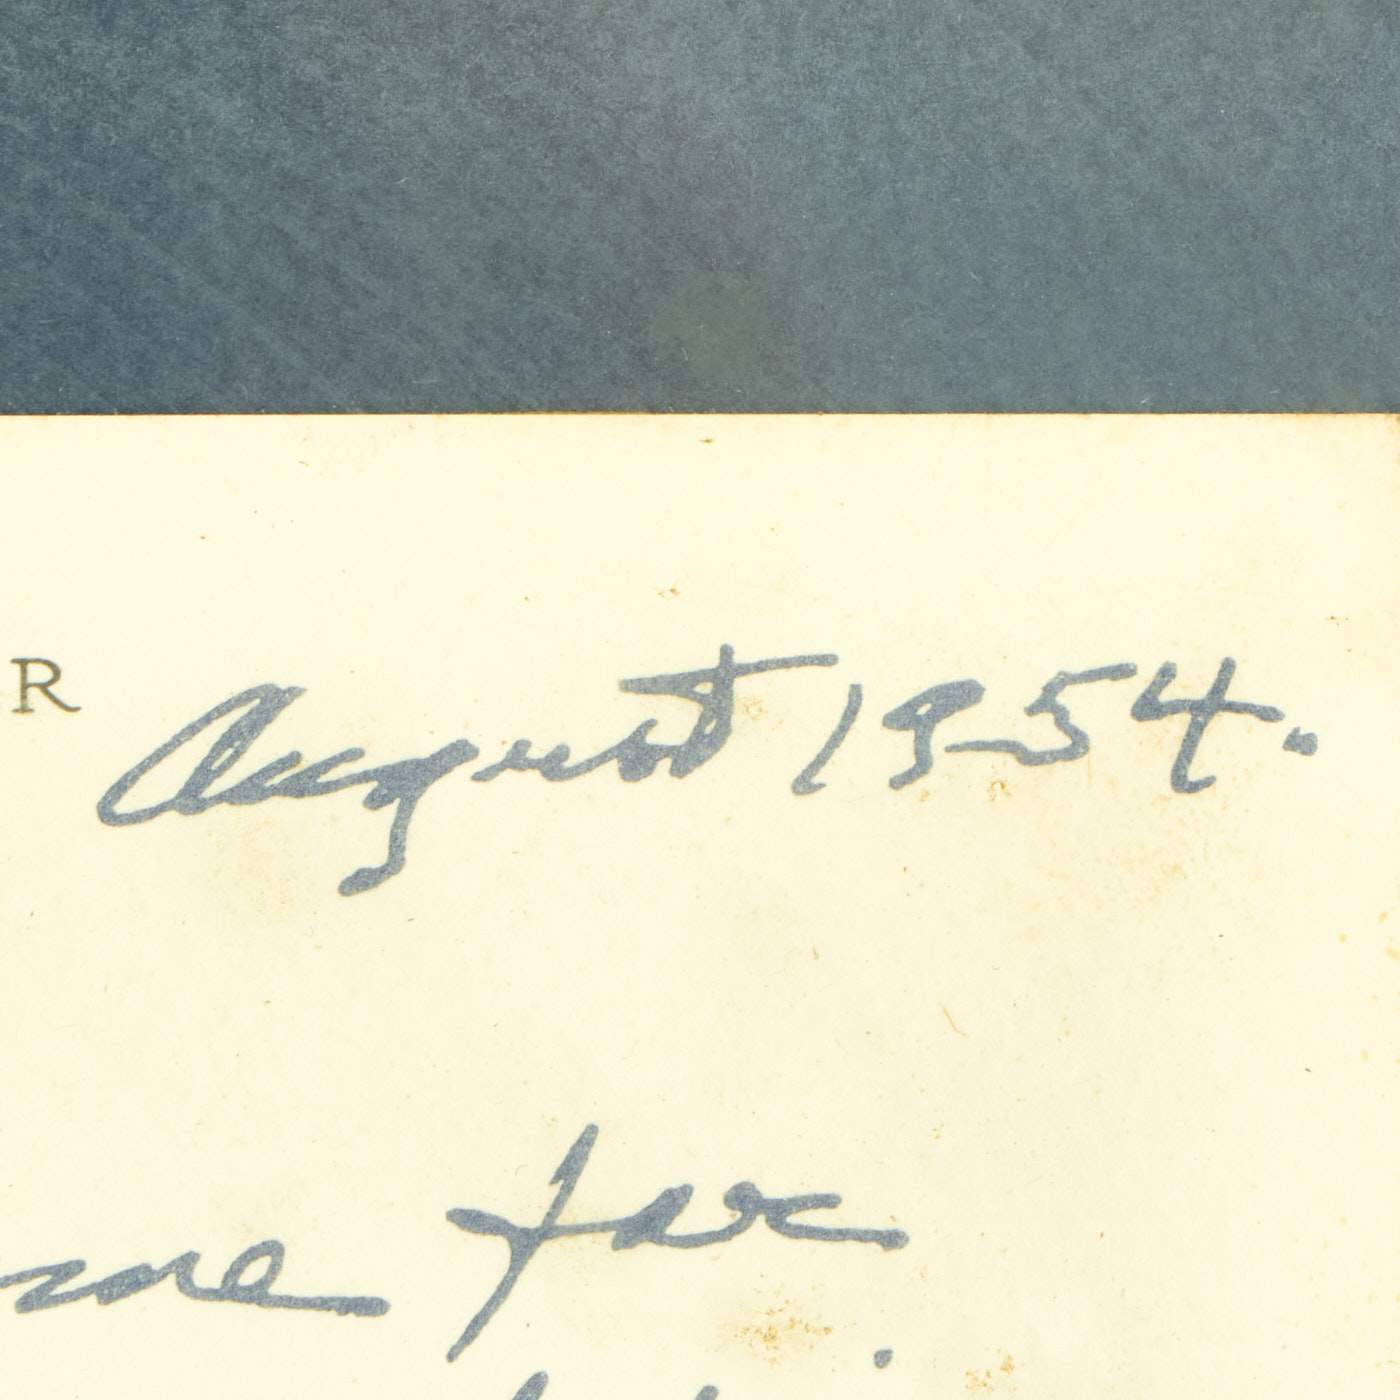 R August 1954.
for